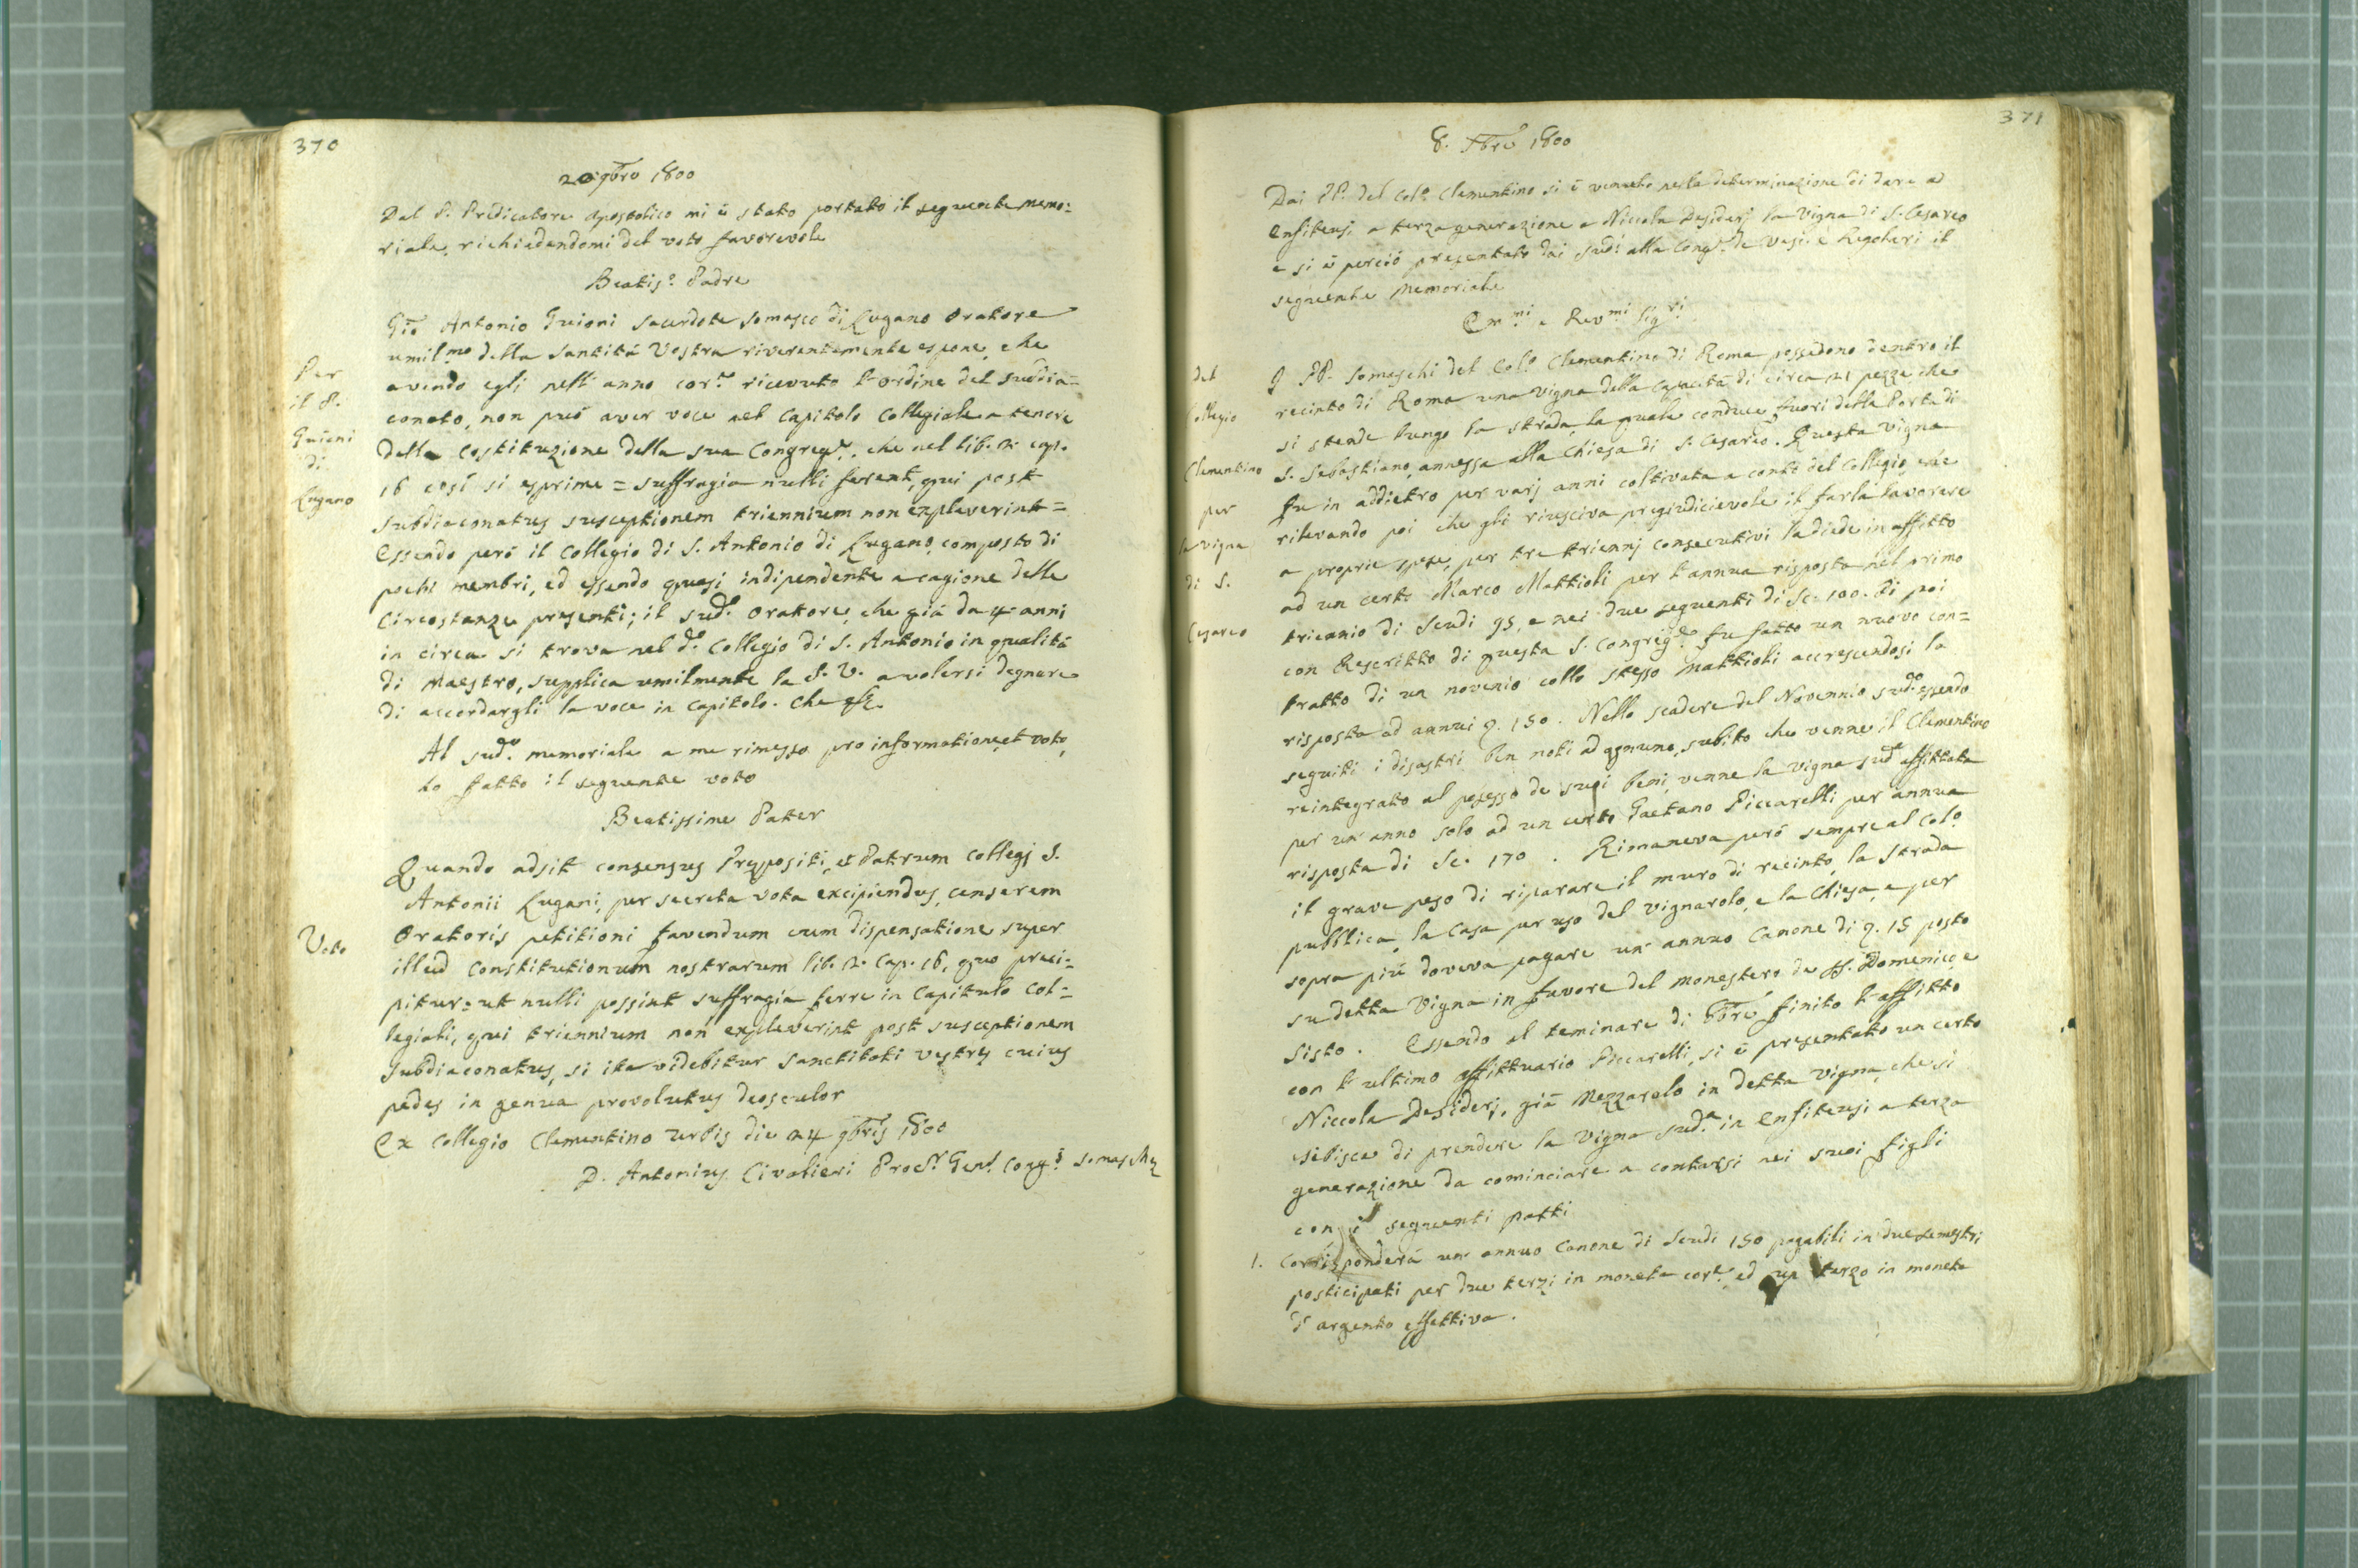 370
20 9bre 1800
Dal P. Predicatore Apostolico mi è stato portato il seguente memo:
riale, richiedendomi del voto favorevole
Beatis.º Padre
Gio Antonio Guioni sacerdote somasco di Lugano Oratore
umil.mo della Santità Vostra riverentemente espone, che
avendo egli nell' anno cor.e ricevuto l'ordine del suddia=
conato, non può aver voce nel Capitolo Collegiale a tenore
della Costituzione della sua Congreg.e, che nel lib. 2. cap.
16 così si esprime = suffragia nulli ferent, qui post
subdiaconatus susceptionem triennium non expleverint =
Essendo però il Collegio di S. Antonio di Lugano composto di
pochi membri, ed essendo quasi indipendente a cagione delle
Circostanze presenti; il sud.º Oratore, che già da 4 anni
in circa si trova nel d.º Collegio di S. Antonio in qualità
di Maestro, supplica umilmente la S. V. a volersi degnare
di accordargli la voce in Capitolo. Che
Per
il P.
Guioni
di
Lugano
Al sud.º memoriale a me rimesso pro informatione, et voto,
ho fatto il seguente voto
Beatissime Pater
Quando adsit consensus Prępositi, et Patrum Collegj S.
Antonii Lugani, per secreta vota excipiendus, censerem
Oratoris petitioni favendum cum dispensatione super
illud Constitutionum nostrarum lib. 2. Cap. 16, quo preci=
pitur = ut nulli possint suffragia ferre in Capitulo Col=
legiali, qui triennium non expleverint post susceptionem
Subdiaconatus, si ita videbitur Sanctitati vestrę cuius
pedes in genua provolutus deosculor
Ex Collegio Clementino Urbis die 24 9bris 1800
D. Antonius Civalieri Proc.r Gen.l Cong.s Somaschę
Voto
371
8. Xbre 1800
Dai PP. del Col.º Clementino si è venuto nella determinazione di dare a
Enfiteusi a terza generazione a Niccola Desiderj la Vigna di S. Cesareo
e si è perciò presentato dai sud.i alla Cong.e de Vesc. e Regolari il
seguente Memoriale
Em.mi e Rev.mi Sig.ri
I PP. Somaschi del Col.º Clementino di Roma possedono dentro il
recinto di Roma una vigna della capacità di circa 21 pezze che
si stende lungo la strada, la quale conduce fuori della Porta di
S. Sebastiano, annessa alla Chiesa di S. Cesareo. Questa vigna
fu in addietro per varj anni coltivata a conto del Collegio, che
rilevando poi che gli riusciva pregiudicievole il farla lavorare
a proprie spese, per tre triennj consecutivi la diede in affitto
ad un certo Marco Mattioli per l'annua risposta nel primo
triennio di Scudi 95, e nei due seguenti di Sc. 100. Di poi
con Rescritto di questa S. Congreg.e fu fatto un nuovo con=
tratto di un novenio collo stesso Mattioli accrescendosi la
risposta ad annui 150. Nello scadere del Novennio sud.º essendo
seguiti i disastri ben noti ad ognuno, subito che venne il Clementino
reintegrato al possesso de suoi beni, venne la vigna sud.a affittata
per un anno solo ad un certo Gaetano Piccarelli per annua
risposta di Sc. 170. Rimaneva però sempre al Col.º
il grave peso di riparare il muro di recinto, la strada
pubblica, la Casa per uso del vignarolo, e la Chiesa, e per
sopra più doveva pagare un annuo Canone di 15 posto
su detta Vigna in favore del Monastero de SS. Domenico, e
Sisto. Essendo al teminare di finito l'affitto
con l'ultimo affittuario Piccarelli, si è presentato un certo
Niccola Desiderj, già Mezzarolo in detta vigna, che si
esibisce di prendere la Vigna sud.a in Enfiteusi a terza
generazione da cominciare a contarsi nei suoi figli
con i seguenti patti
1. Corrisponderà un annuo Canone di Scudi 150 pagabili in due semestri
posticipati per due terzi in moneta cor.e, ed un terzo in moneta
d' argento effettiva.
del
Collegio
Clementino
per
la vigna
di S.
Cesareo